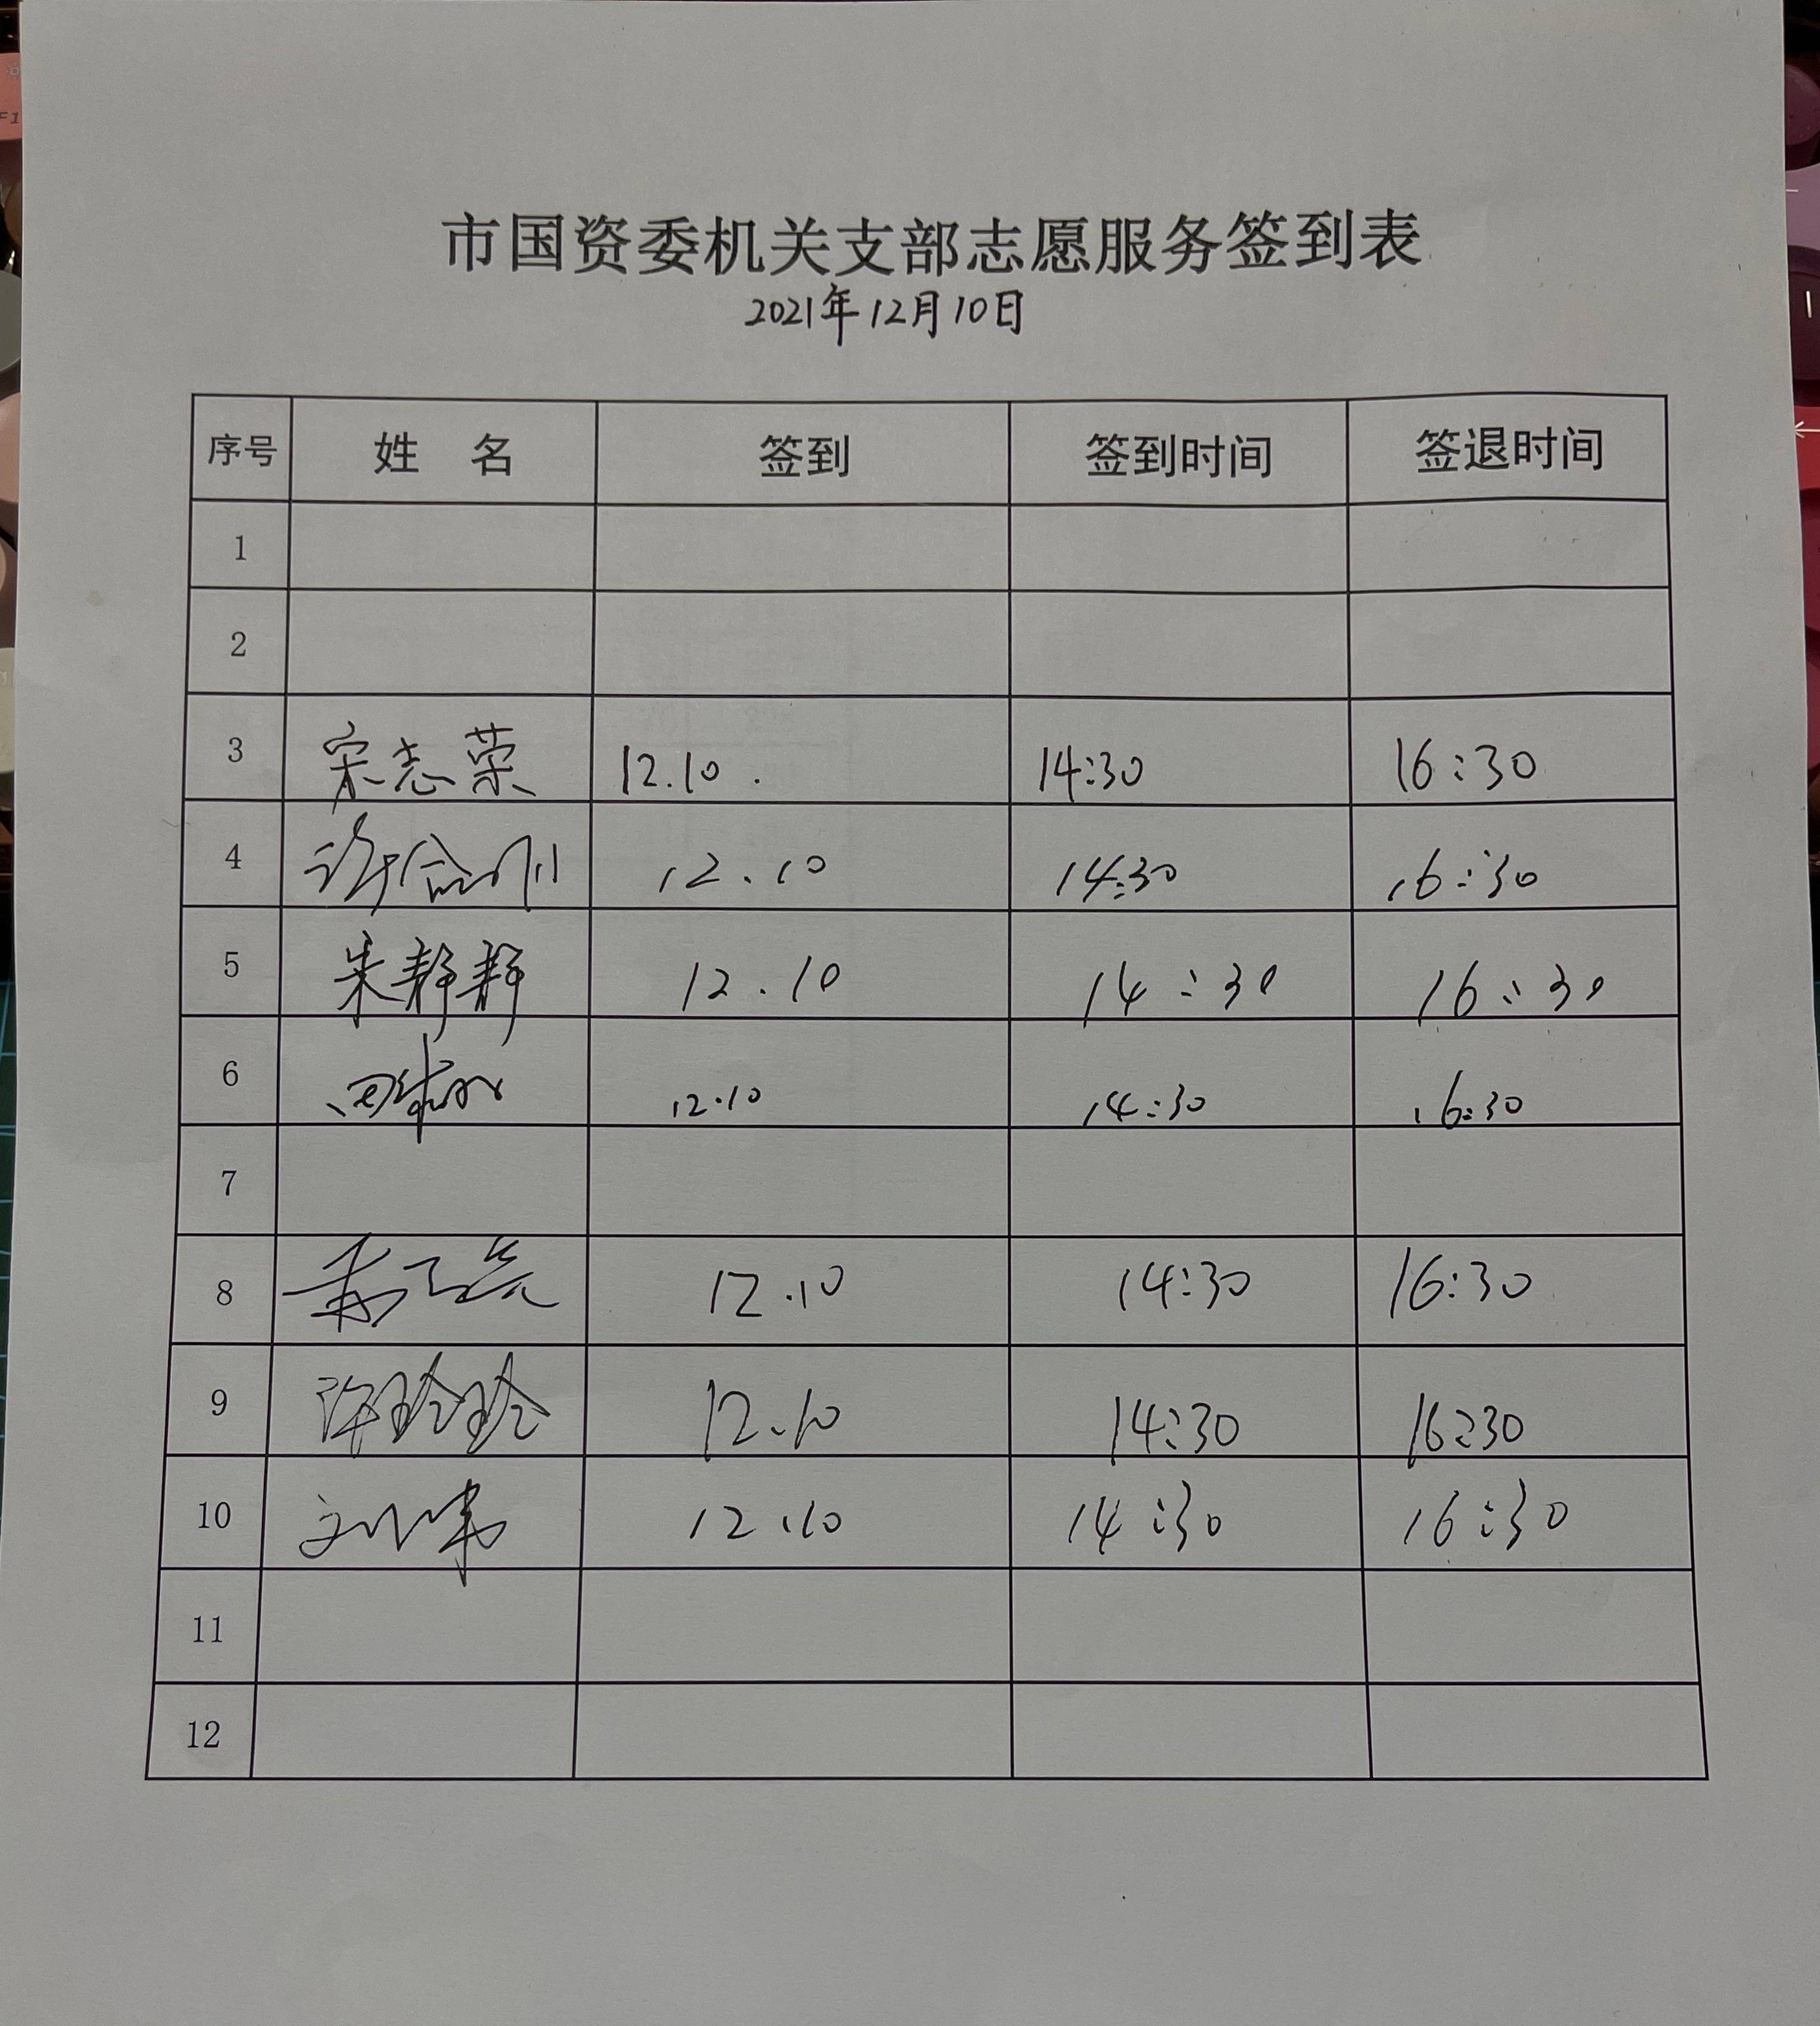 市国资委机关支部志愿服务签到表
2021年12月10日
序号 姓 名 签到 签到时间 签退时间
1
2
3 宋志荣 12.10. 14:30 16:30
4 12.10 14:30 16:30
5 朱静静 12.10 14:30 16:30
6 12.10 14:30 16:30
7
8 12.10 14:30 16:30
9 许玲玲 12.10 14:30 16:30
10 12.10 14:30 16:30
11
12